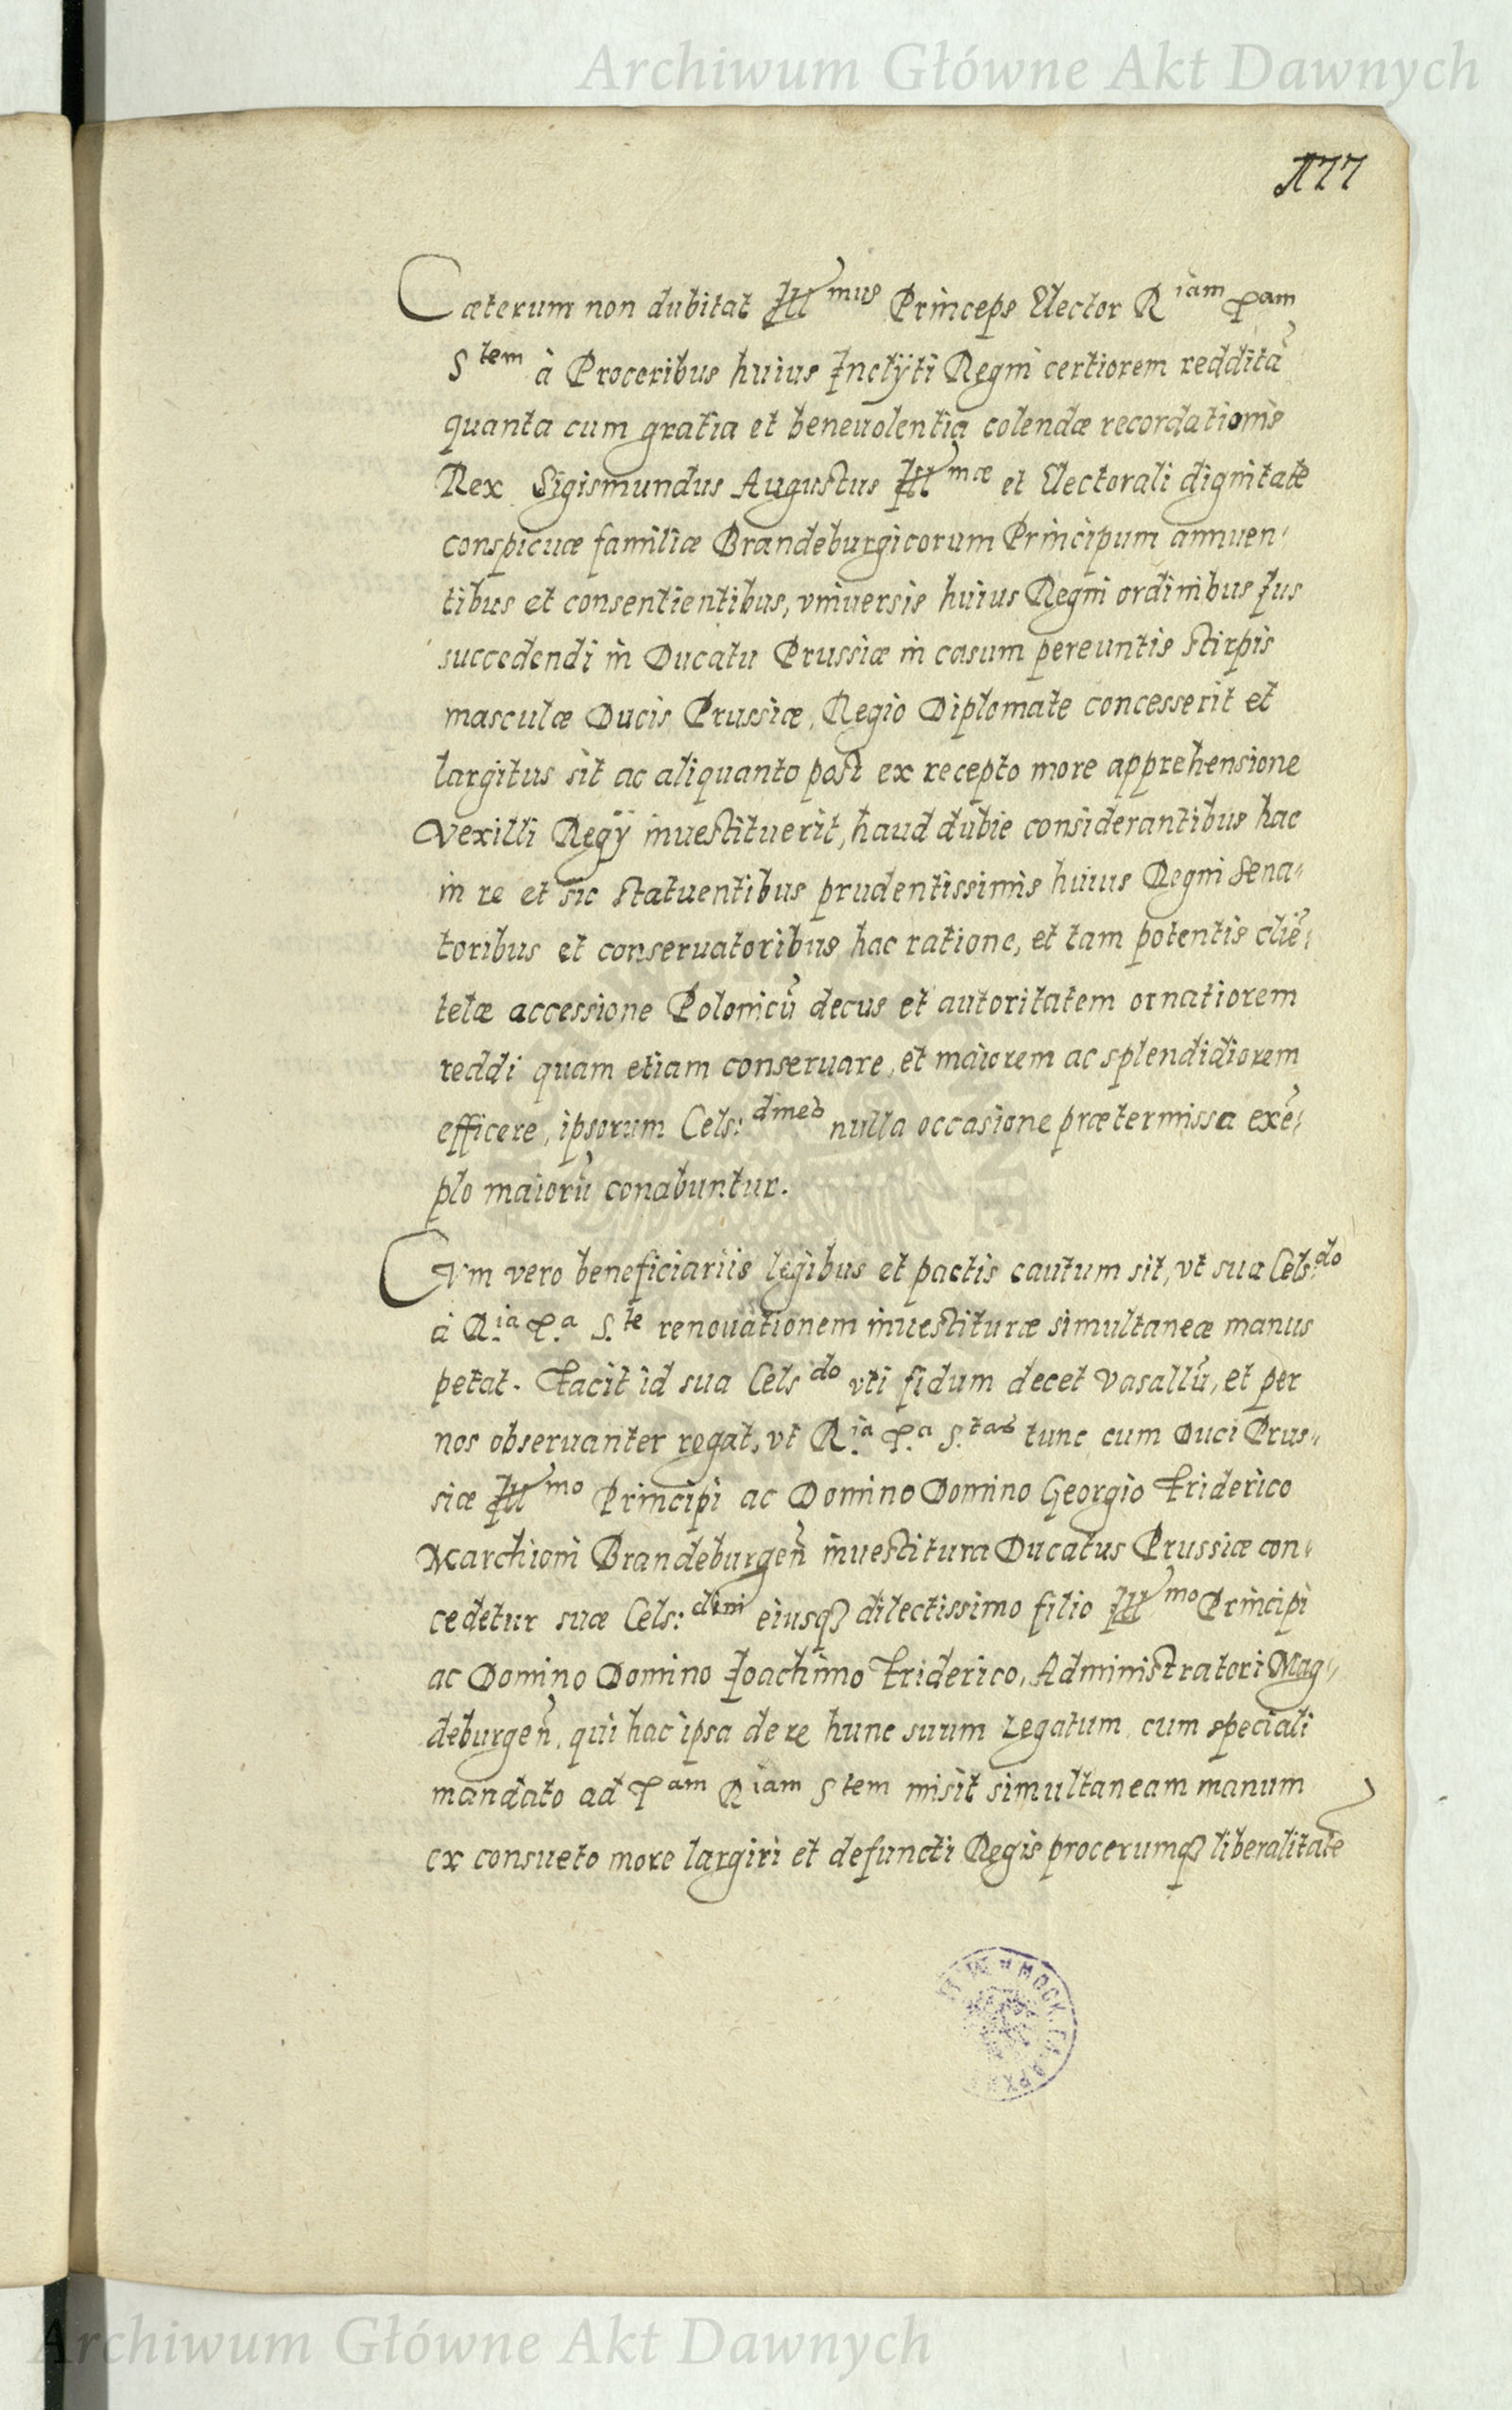 Archiwum Główne Akt Dawnych
177
Cæterum non dubitat Ill^mus Princeps Elector R^iam P^am
S^tem à Proceribus huius Inclÿti Regni certiorem redditã
quanta cum gratia et beneuolentia colendæ recordationis
Rex Sigismundus Augustus Ill^mæ et Electorali dignitate
conspicuæ familiæ Brandeburgicorum Principum annuen-
tibus et consentientibus, vniuersis huius Regni ordinibus Jus
succedendi in Ducatu Prussiæ in casum pereuntis stirpis
masculæ Ducis Prussiæ, Regio Diplomate concesserit et
largitus sit ac aliquanto post ex recepto more apprehensione
Vexilli Regÿ inuestituerit, haud dubie considerantibus hac
in re et sic statuentibus prudentissimis huius Regni Sena-
toribus et conseruatoribus hac ratione, et tam potentis cliẽ-
telæ accessione Polonicũ decus et autoritatem ornatiorem
reddi quam etiam conseruare, et maiorem ac splendidiorem
efficere, ipsorum Cels:^dines nulla occasione prætermissa exẽ-
plo maiorũ conabuntur.
CVm vero beneficiariis legibus et pactis cautum sit, vt sua Cels:^do
à R.^ia P.^a S.^te renouationem inuestituræ simultaneæ manus
petat. Facit id sua Cels^do vti fidum decet Vasallũ, et per
nos obseruanter rogat, vt R.^ia P.^a S.^tas tunc cum Duci Prus-
siæ Ill^mo Principi ac Domino Domino Georgio Friderico
Marchioni Brandeburgeñ inuestitura Ducatus Prussiæ con-
cedetur suæ Cels:^dini eiusq3 dilectissimo filio Ill^mo Principi
ac Domino Domino Joachimo Friderico, Administratori Mag-
deburgeñ, qui hac ipsa de re hunc suum Legatum cum speciali
mandato ad P^am R^iam S^tem misit simultaneam manum
ex consueto more largiri et defuncti Regis procerumq3 liberalitate
Archiwum Główne Akt Dawnych